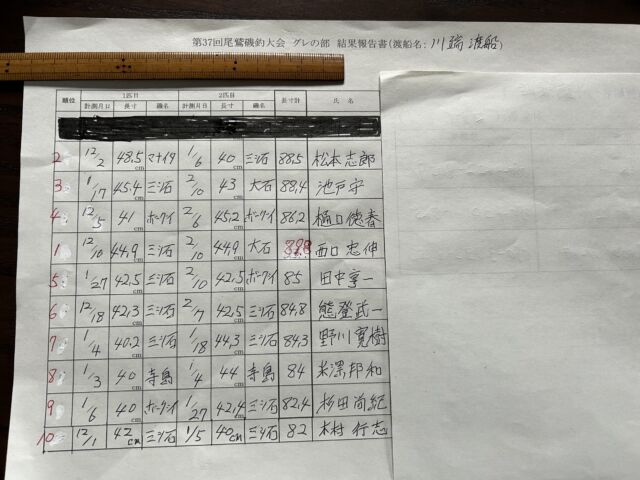 第37回尾鷲磯釣大会 グレの部 結果報告書(渡船名: 川端渡船)
1匹目 2匹目
順位 計測月日 長寸 磯名 計測月日 長寸 磯名 長寸計 氏 名
2 12/2 48.5cm マナイタ 1/6 40cm 三ツ石 88.5 松本志郎
3 1/17 45.4cm 三ツ石 2/10 43cm 大石 88.4 池戸守
4 12/5 41cm ホーケイ 2/6 45.2cm ホーケイ 86.2 樋口徳春
1 12/10 44.9cm 三ツ石 2/10 44.9cm 大石 西口忠伸
5 1/27 42.5cm 三ツ石 2/10 42.5cm ホーケイ 85 田中享一
6 12/18 42.3cm 三ツ石 2/7 42.5cm 三ツ石 84.8 熊登武一
7 1/4 40.2cm 三ツ石 1/18 44.3cm 三ツ石 84.3 野川寛樹
8 1/3 40cm 寺島 1/4 44cm 寺島 84 米澤邦和
9 1/6 40cm ホーケイ 1/27 42.4cm 三ツ石 82.4 杉田尚紀
10 12/1 42cm 三ツ石 1/5 40cm 三ツ石 82 木村行志